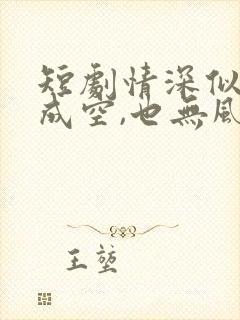 短劇情深似
成空,也無風
王堃